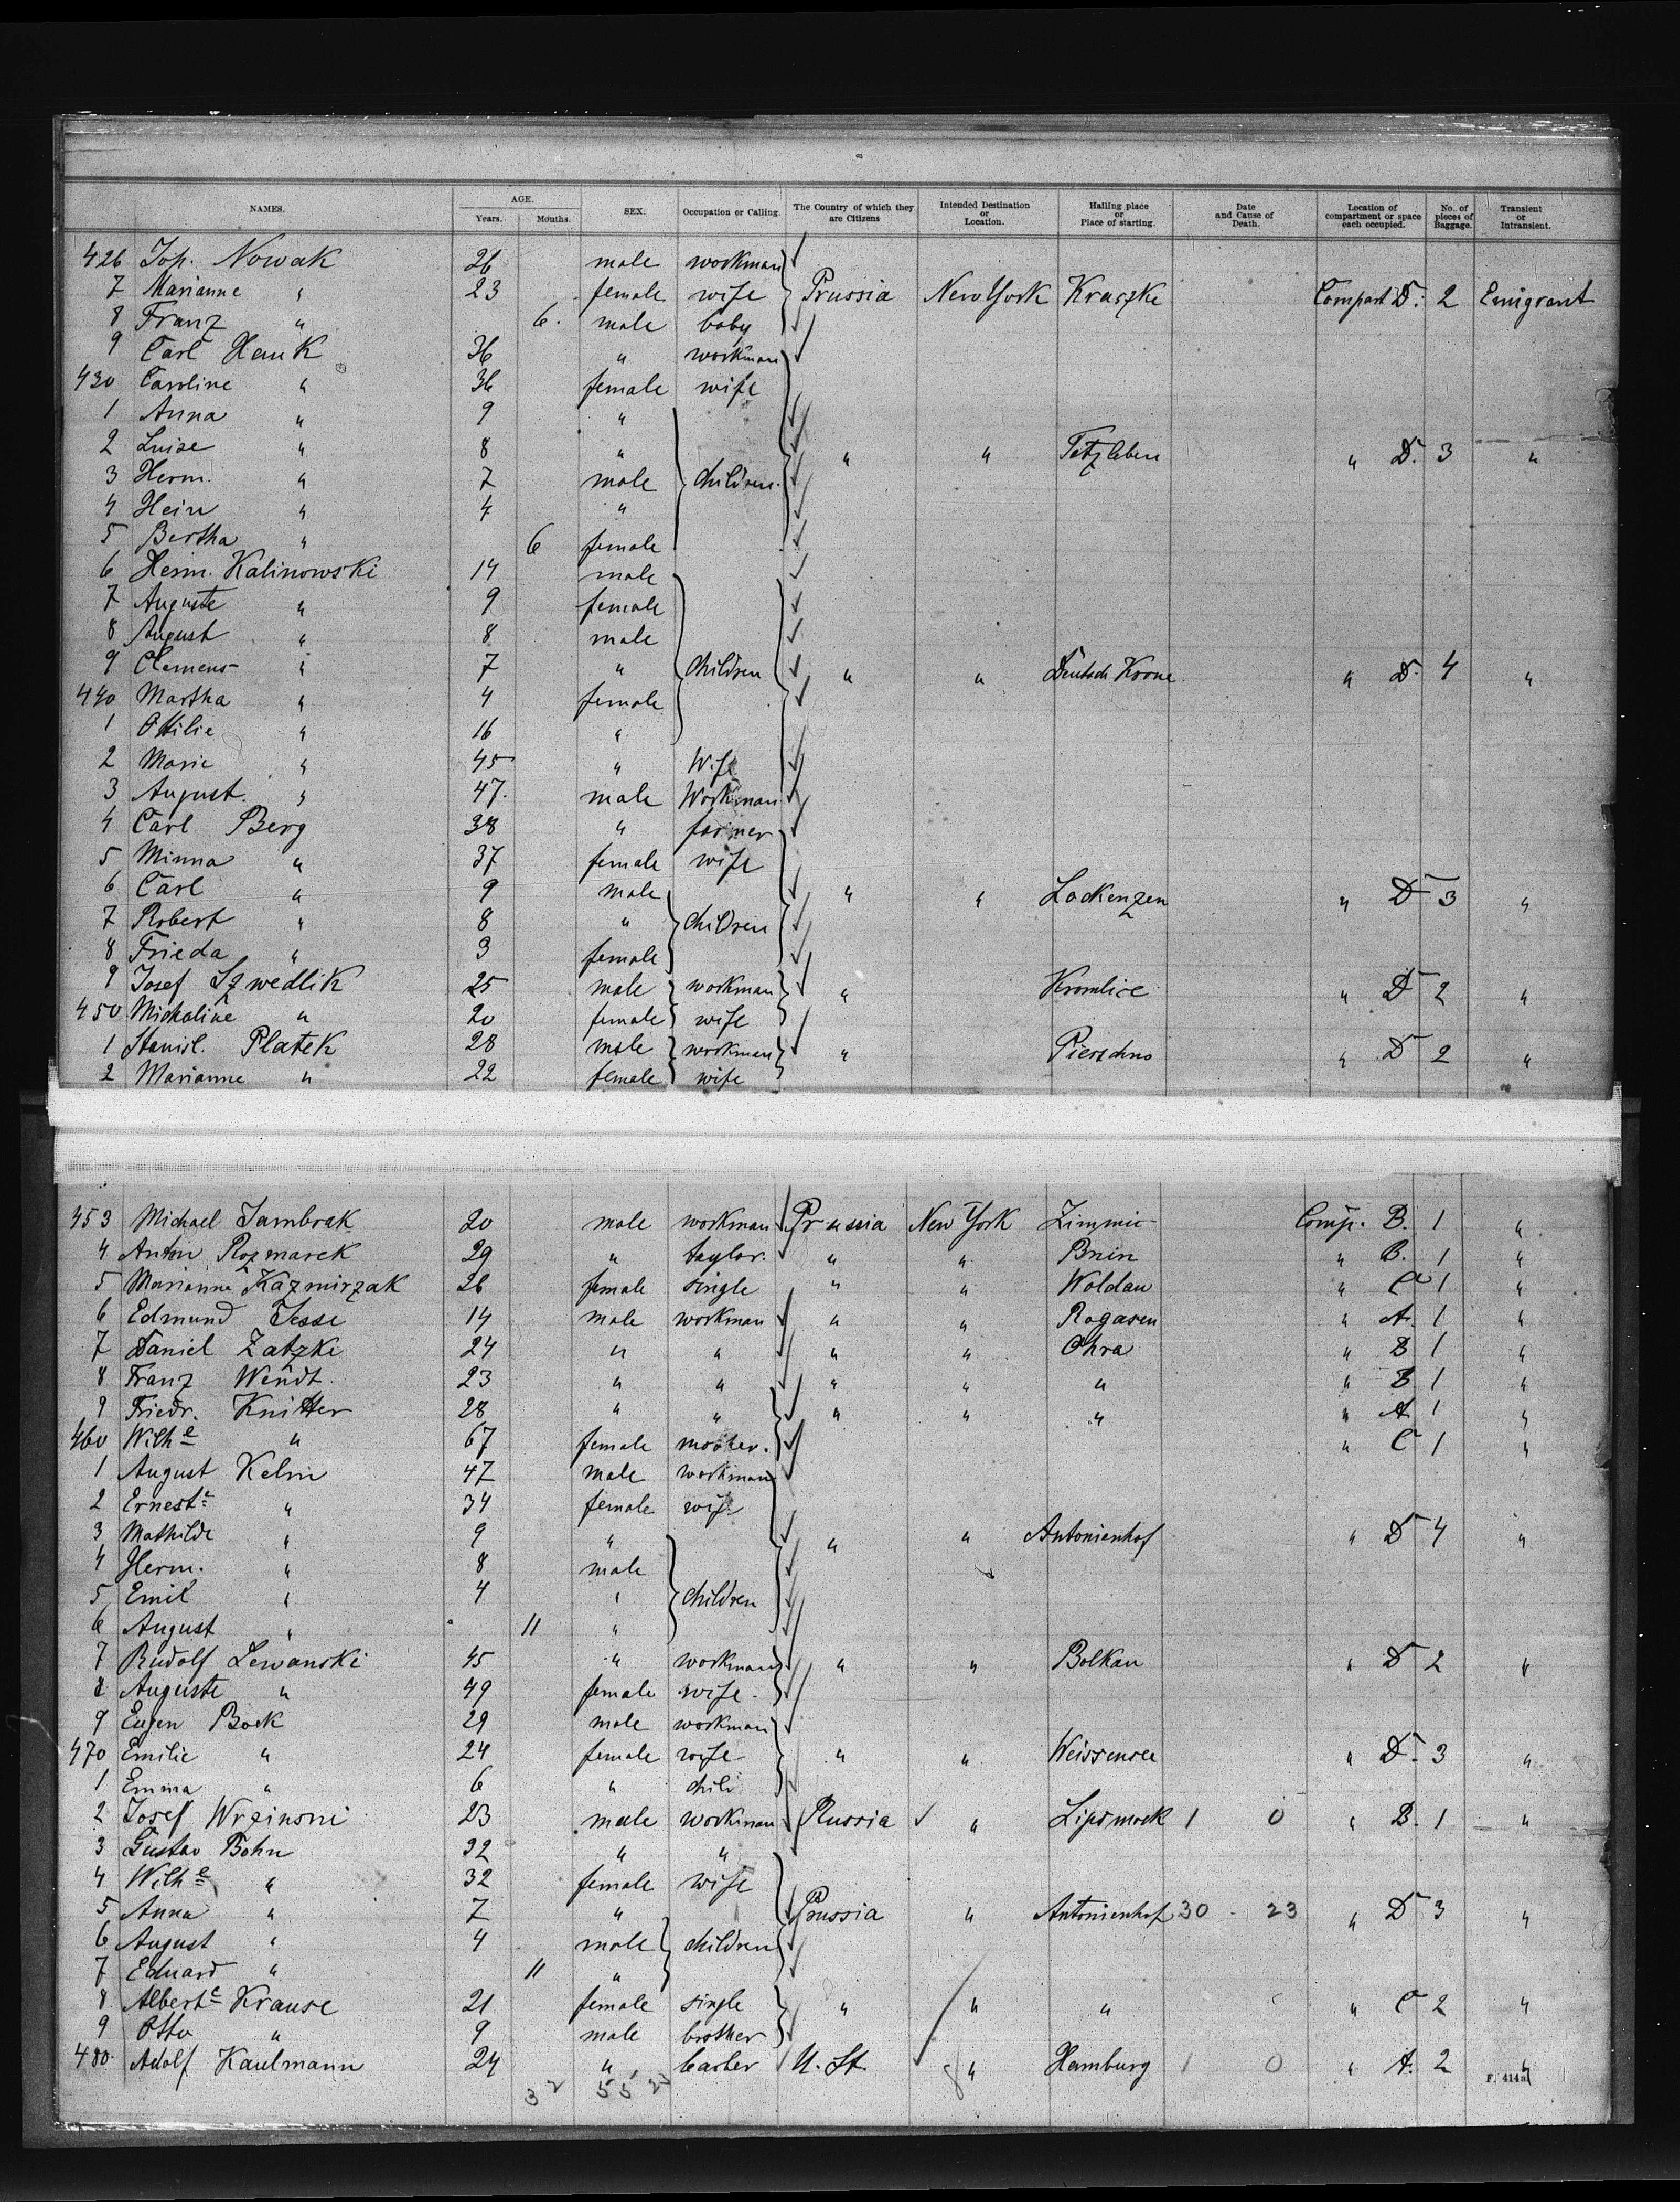 NAMES. AGE. Years. Months. SEX. Occupation or Calling. The Country of which they are Citizens Intended Destination or Location. Hailing place or Place of starting. Date and Cause of Death. Location of compartment or space each occupied. No. of pieces of Baggage. Transient or Intransient.
426 Joh. Nowak 26 male workman
7 Marianne " 23 female wife Prussia New York Kruszke Compart D. 2 Emigrant
8 Franz " 6. male baby
9 Carl Henk 36 " workman
430 Caroline " 36 female wife
1 Anna " 9 "
2 Luise " 8 " " " Tetzleben " D. 3 "
3 Herm. " 7 male children
4 Hein " 4 "
5 Bertha " 6 female
6 Herm. Kalinowski 14 male
7 Auguste " 9 female
8 August " 8 male
9 Clemens " 7 " children " " Deutsch Krone " D. 4 "
440 Martha " 4 female
1 Ottilie " 16 "
2 Marie " 45 " Wife
3 August. " 47. male Workman
4 Carl Berg 38 " farmer
5 Minna " 37 female wife
6 Carl " 9 male " " Lockenzen " D 3 "
7 Robert " 8 " children
8 Frieda " 3 female
9 Josef Szwedlik 25 male workman " Kromlice " D 2 "
450 Michaline " 20 female wife
1 Stanisl. Platek 28 male workman " Pierschno " D 2 "
2 Marianne " 22 female wife
453 Michael Jambrak 20 male workman Prussia New York Zimmic Comp. B. 1 "
4 Anton Rozmarek 29 " taylor. " " Bnin " B. 1 "
5 Marianne Kazmirzak 26 female single " " Woldau " C 1 "
6 Edmund Jesse 14 male workman " " Rogasen " A. 1 "
7 Daniel Zatzke 24 " " " " Ohra " B 1 "
8 Franz Wendt. 23 " " " " " " B 1 "
9 Friedr. Knitter 28 " " " " " " A 1 "
460 Wilhe " 67 female mother. " C 1 "
1 August Kelm 47 male workman
2 Erneste " 34 female wife
3 Mathilde " 9 " " " Antonienhof " D 4 "
4 Herm. " 8 male
5 Emil " 4 " children
6 August " 11 "
7 Rudolf Lewanski 45 " workman " " Bolkau " D 2 "
8 Auguste " 49 female wife.
9 Eugen Bock 29 male workman
470 Emilie " 24 female wife " " Weissensee " D. 3 "
1 Emma " 6 " child
2 Josef Wrzinsni 23 male workman Russia " Lipsmock 1 0 " B. 1 "
3 Gustav Bohn 32 " "
4 Wilhe " 32 female wife
5 Anna " 7 " Prussia " Antonienhof 30 - 23 " D 3 "
6 August " 4 male children
7 Eduard " 11 "
8 Alberte Krause 21 female single " " " " C 2 "
9 Otto " 9 male brother
480. Adolf Kaulmann 24 " barber U. St. " Hamburg 1 0 " A. 2 "
32 55 23
F. 414a